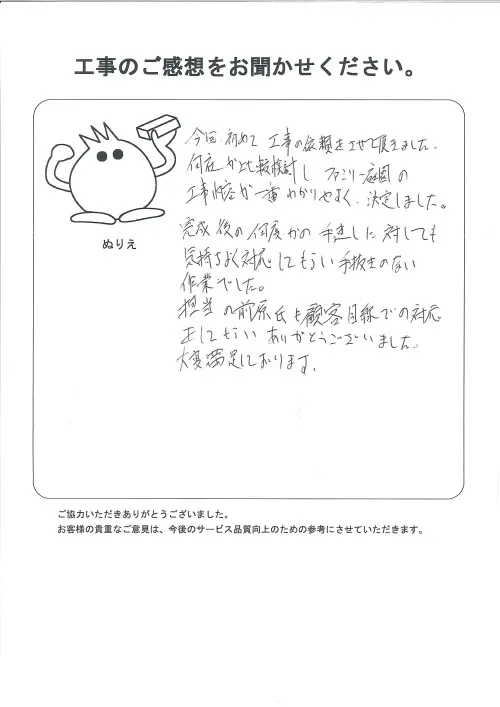 工事のご感想をお聞かせください。
今回 初めて 工事の依頼をさせて頂きました。
何社かと比較検討し ファミリー庭園の
工事内容が一番わかりやすく、決定しました。
完成後の何度かの手直しに対しても
気持ちよく対応してもらい手抜きのない
作業でした。
担当の前原氏も顧客目線での対応
をしてもらい ありがとうございました。
大変満足しております。
ぬりえ
ご協力いただきありがとうございました。
お客様の貴重なご意見は、今後のサービス品質向上のための参考にさせていただきます。